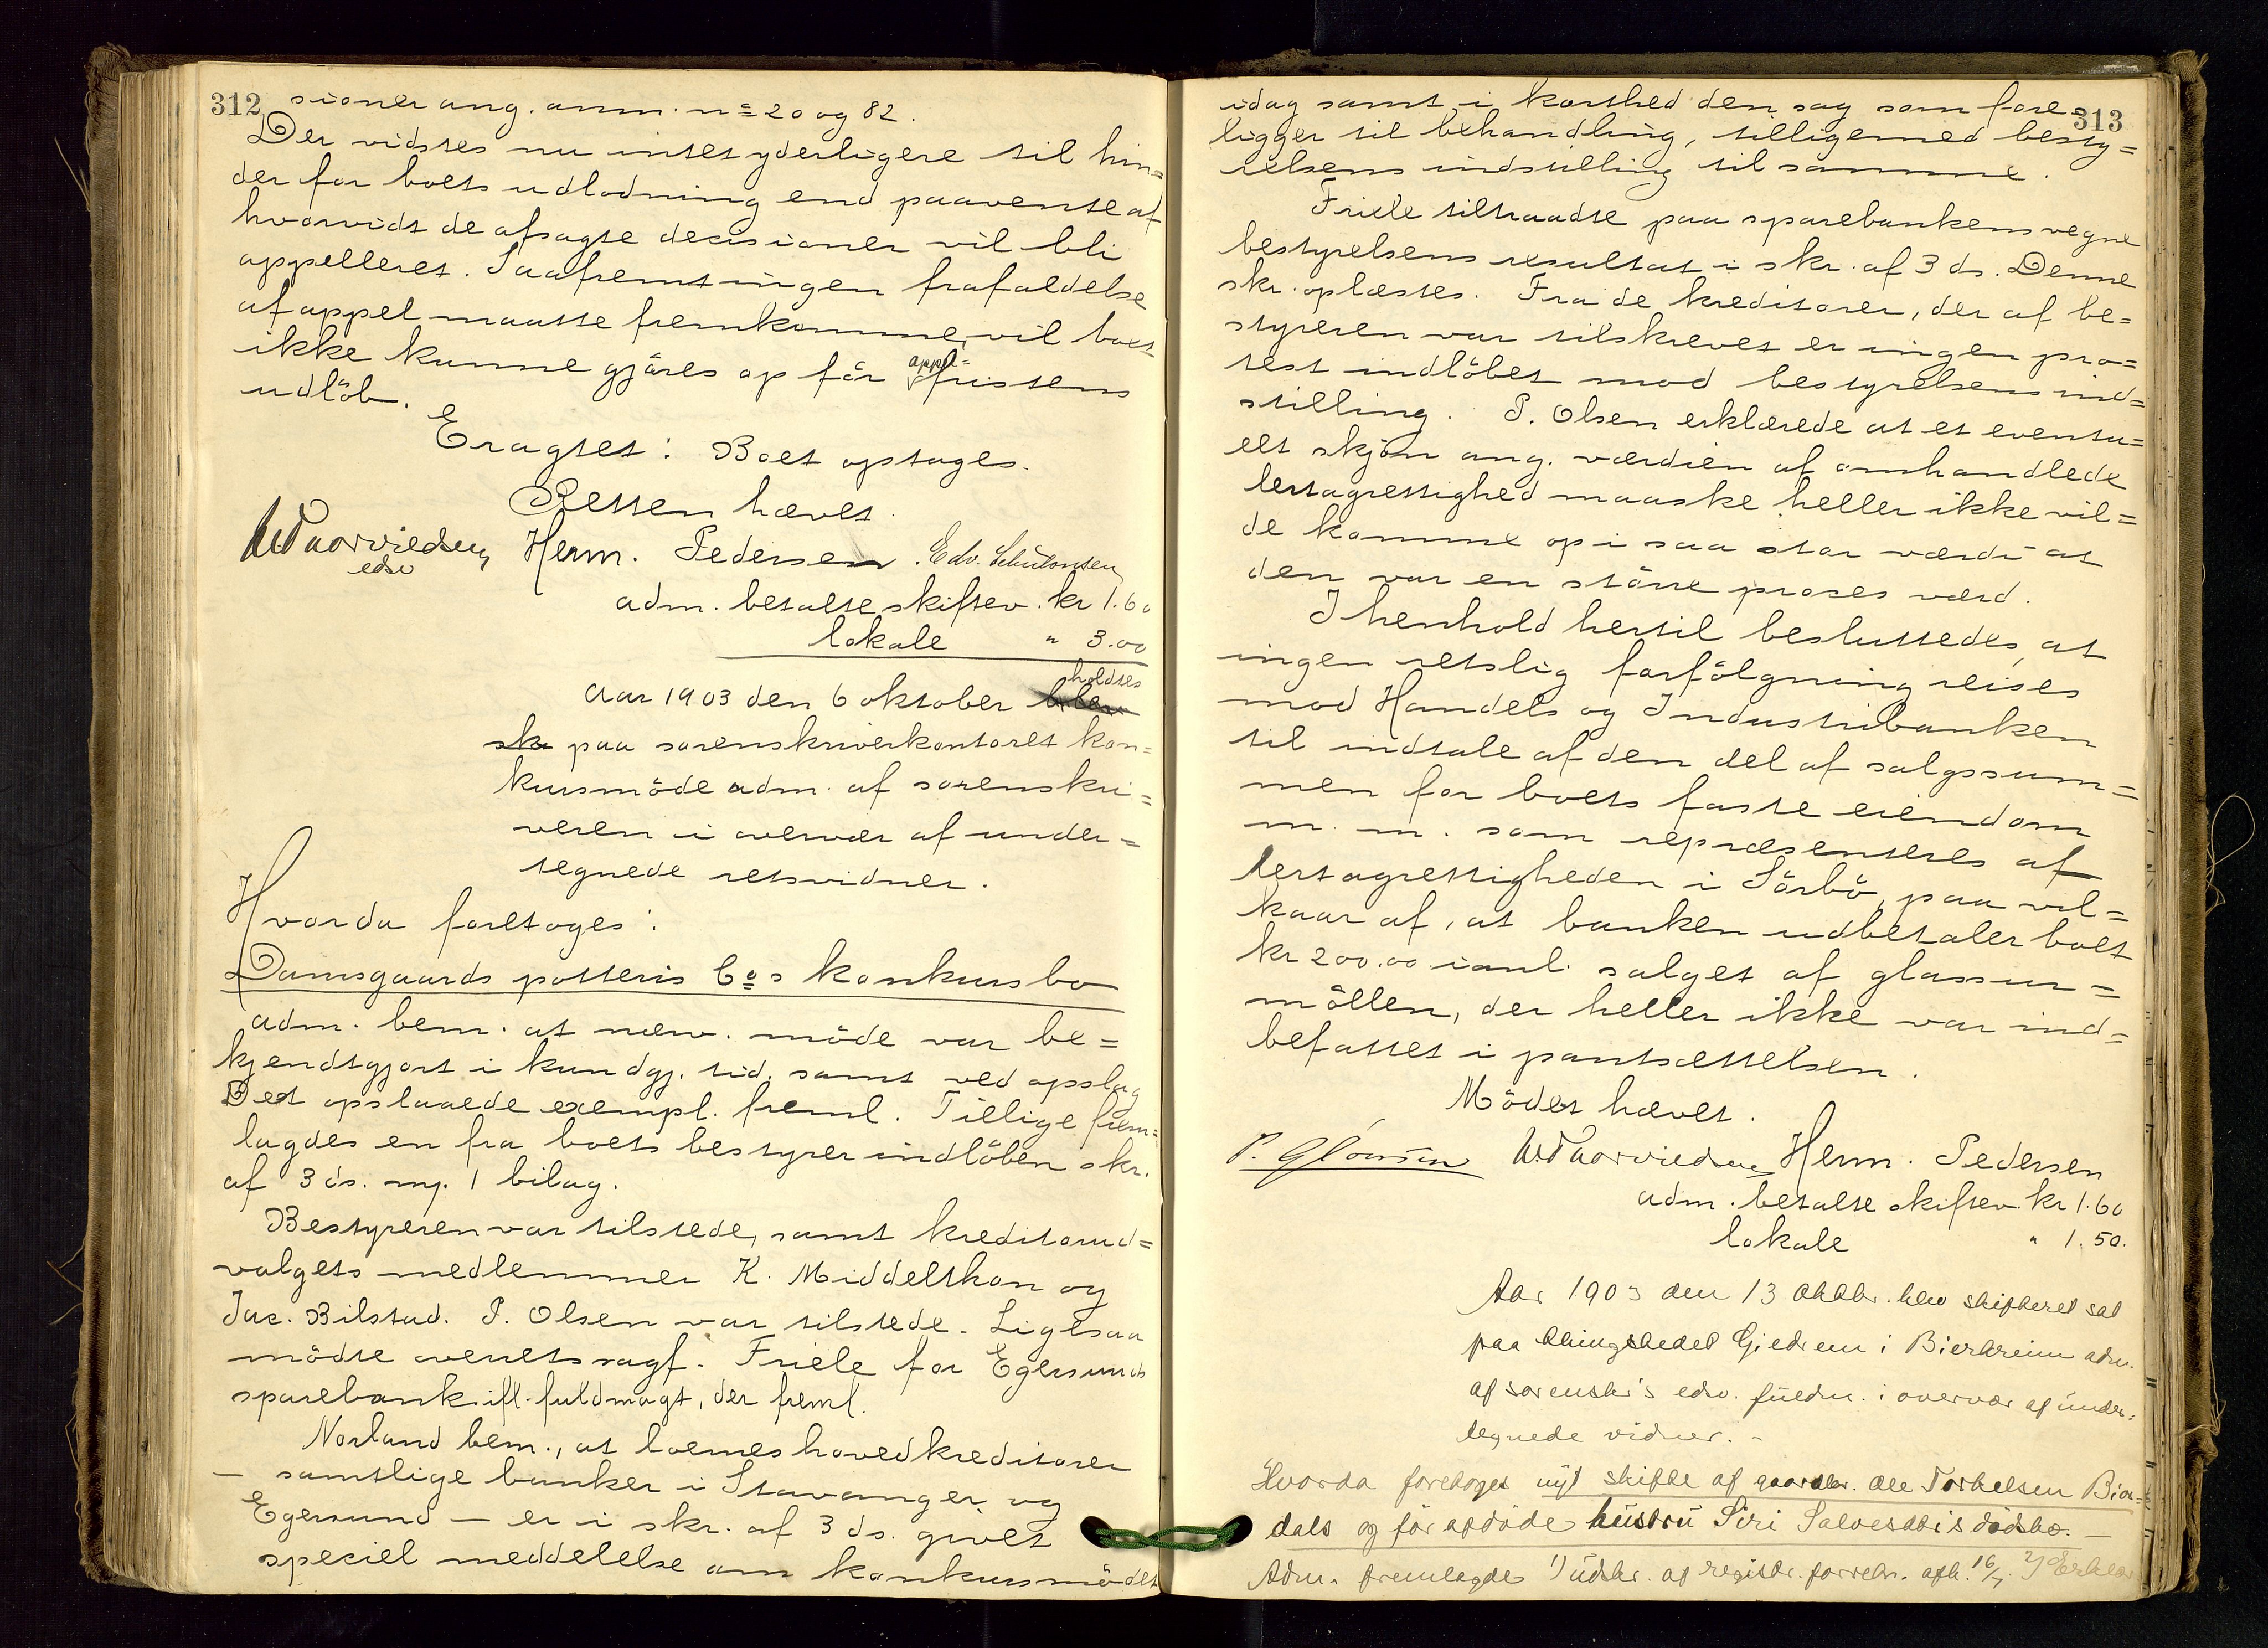 312
sioner ang. anm. no 20 og 82.
Der vidstes nu intet yderligere til hin=
der for boets udlodning end paavente af
hvorvidt de afsagte decisioner vil bli
appelleret. Saafremt ingen frafaldelse
af appel maatte fremkomme, vil boet
ikke kunne gjøres op før appel=fristens
udløb.
Eragtet: Boet optages.
Retten hævet.
Herm. Pedersen
edsv
adm. betalte skiftev. kr 1.60
lokale " 3.00
Aar 1903 den 6 oktober holdtes
paa sorenskriverkontoret kon=
kursmøde adm. af sorenskri=
veren i overvær af under=
tegnede retsvidner.
Hvorda foretoges:
Damsgaards potteris Cos konkursbo
adm. bem. at nærv. møde var be=
kjendtgjort i kundgj. tid. samt ved opslag
Det opslaaede exempl. freml. Tillige frem=
lagdes en fra boets bestyrer indløben skr.
af 3 ds. m. 1 bilag.
Bestyreren var tilstede, samt kreditorud=
valgets medlemmer K. Middelthon og
Jac. Bilstad. P. Olsen var tilstede. Ligesaa
mødte overretssagf. Friele for Egersunds
sparebank ifl. fuldmagt, der freml.
Norland bem., at boernes hovedkreditorer
— samtlige banker i Stavanger og
Egersund — er i skr. af 3 ds. givet
speciel meddelelse om konkursmødet
313
idag samt i korthed den sag som fore=
ligger til behandling, tilligemed besty=
relsens indstilling til samme.
Friele tiltraadte paa sparebankens vegne
bestyrelsens resultat i skr. af 3 ds. Denne
skr. oplæstes. Fra de kreditorer, der af be=
styreren var tilskrevet er ingen pro=
test indløbet mod bestyrelsens ind=
stilling. P. Olsen erklærede at et eventu=
elt skjøn ang. værdien af omhandlede
lertagrettighed maaske heller ikke vil=
de komme op i saa stor værdi at
den var en større proces værd.
I henhold hertil besluttedes, at
ingen retslig forfølgning reises
mod Handels og Industribanken
til indtale af den del af salgssum=
men for boets faste eiendom
m. m. som repræsenteres af
lertagrettigheden i Sørbø, paa vil=
kaar af, at banken udbetaler boet
kr 200.00 i anl. salget af glassur=
møllen, der heller ikke var ind=
befattet i pantsættelsen.
Mødet hævet.
Herm. Pedersen
adm. betalte skiftev. kr 1.60
lokale " 1.50.
Aar 1903 den 13 oktbr. blev skifteret sat
paa thingstedet Gjedrem i Bjerkreim adm.
af sorenskr's edsv. fuldm. i overvær af under=
tegnede vidner. -
Hvorda foretoges nyt skifte af gaardbr. Ole Torkelsen Bior=
dals og før afdøde hustru Siri Salvesdtis dødsbo. —
Adm. fremlagde 1) udskr. af registr. forretn. afh. 16/7. 2) Erklær